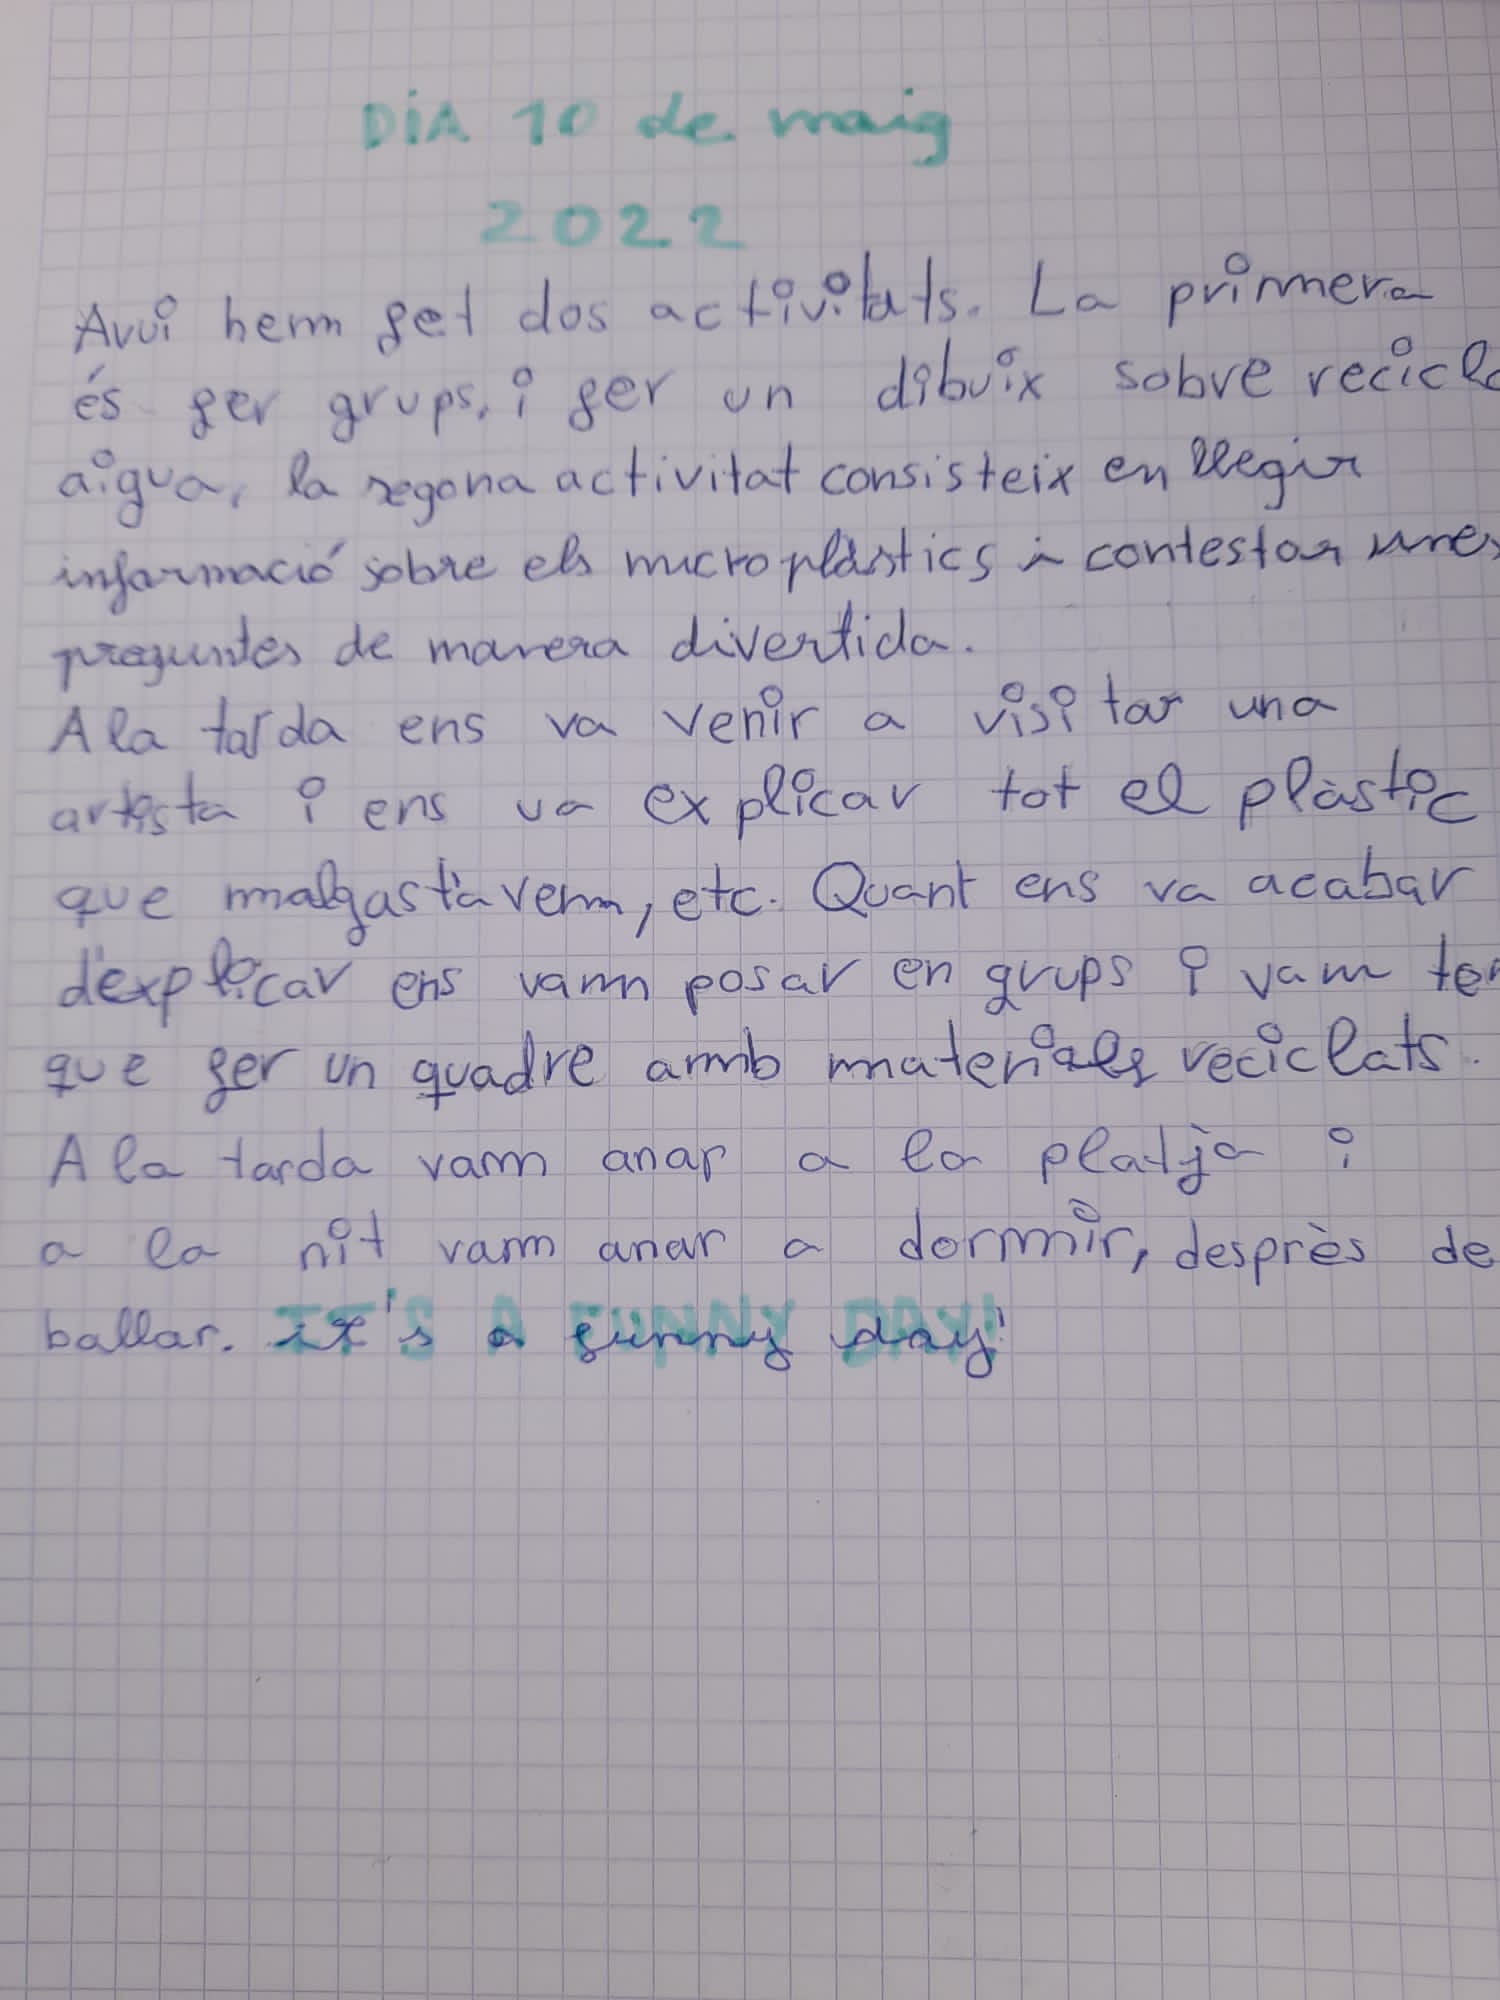 DIA 10 de maig
2022
Avui hem fet dos activitats. La primera
és fer grups, i fer un dibuix sobre recicla
aigua, la segona activitat consisteix en llegir
informació sobre els microplàstics i contestar unes
preguntes de manera divertida.
A la tarda ens va venir a visitar una
artista i ens va explicar tot el plàstic
que malgastàvem, etc. Quant ens va acabar
d'explicar ens vam posar en grups i vam ter
que fer un quadre amb materials reciclats.
A la tarda vam anar a la platja i
a la nit vam anar a dormir, desprès de
ballar. it's a funny day!